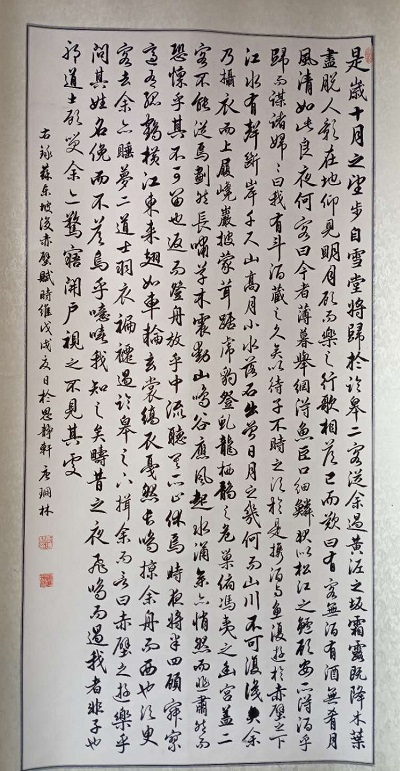 是歲十月之望步自雪堂將歸於臨皋二客從余過黃泥之坂霜露既降木葉
盡脫人影在地仰見明月顧而樂之行歌相答已而歎曰有客無酒有酒無肴月
風清如此良夜何客曰今者薄暮舉網得魚巨口細鱗狀似松江之鱸顧安所得酒乎
歸而謀諸婦婦曰我有斗酒藏之久矣以待子不時之須於是攜酒與魚復遊於赤壁之下
江水有聲斷岸千尺山高月小水落石出曾日月之幾何而山川不可復識矣余
乃攝衣而上履巉巖披蒙茸踞虎豹登虬龍棲鶻之危巢俯馮夷之幽宮蓋二
客不能從焉劃然長嘯草木震動山鳴谷應風起水涌余亦悄然而悲肅然而
恐懍乎其不可留也返而登舟放乎中流聽其所止休焉時夜將半四顧寂寥
適有孤鶴橫江東來翅如車輪玄裳縞衣戛然長鳴掠余舟而西也須臾
客去余亦睡夢二道士羽衣蹁躚過臨皋之下揖余而言曰赤壁之遊樂乎
問其姓名俛而不答嗚呼噫嘻我知之矣疇昔之夜飛鳴而過我者非子也
耶道士顧笑余亦驚寤開戶視之不見其處
蘇東坡後赤壁賦時維戊戌夏日於思靜軒 林